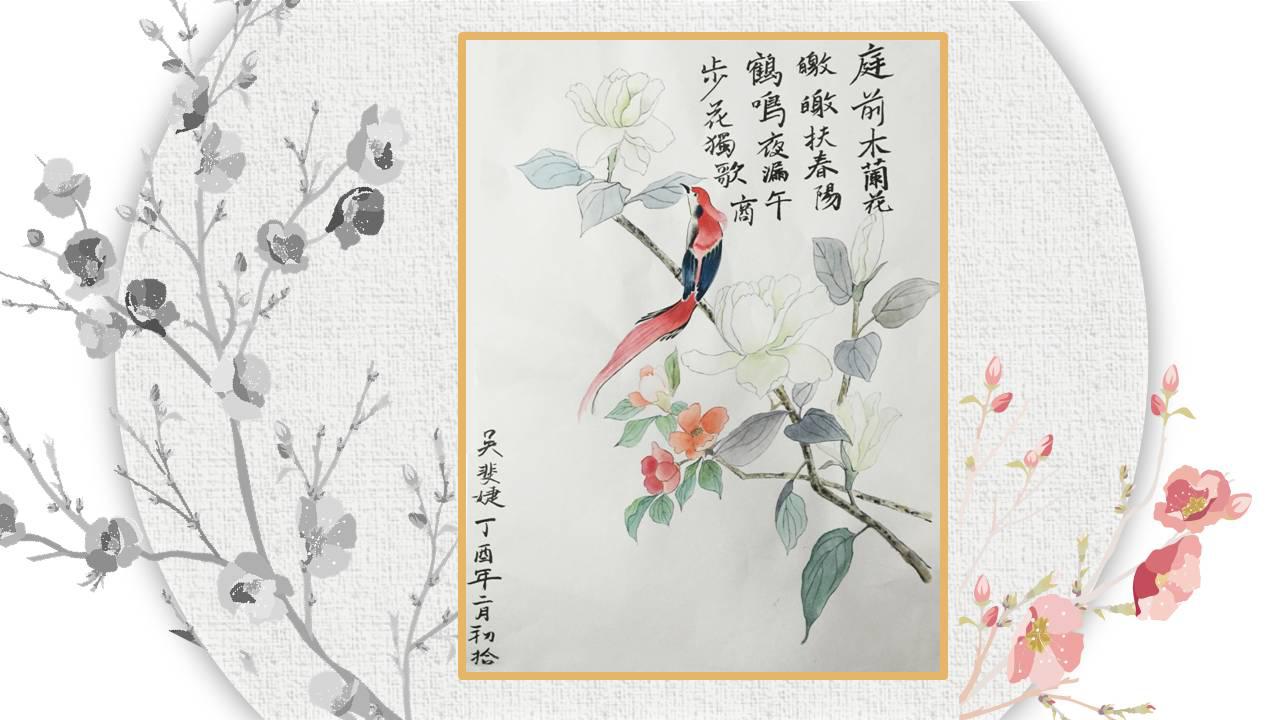 庭前木蘭花
皦皦扶春陽
鶴鳴夜漏午
步花獨歌商
吴斐婕丁酉年二月初拾